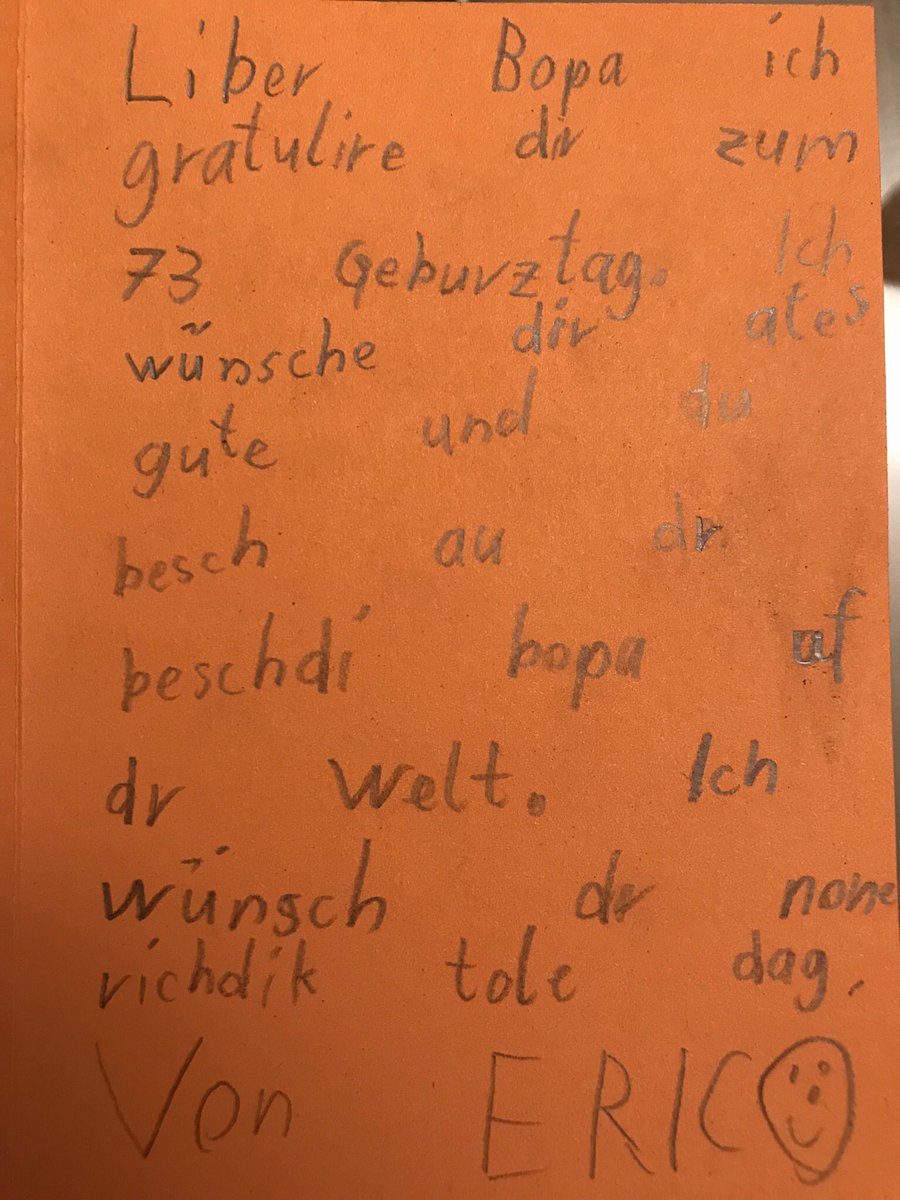 Liber Bopa ich
gratulire dir zum
73 Geburztag. Ich
wünsche dir ates
gute und du
besch au dr
beschdi bopa uf
dr welt. Ich
wünsch dr none
richdik tole dag.
Von ERIC